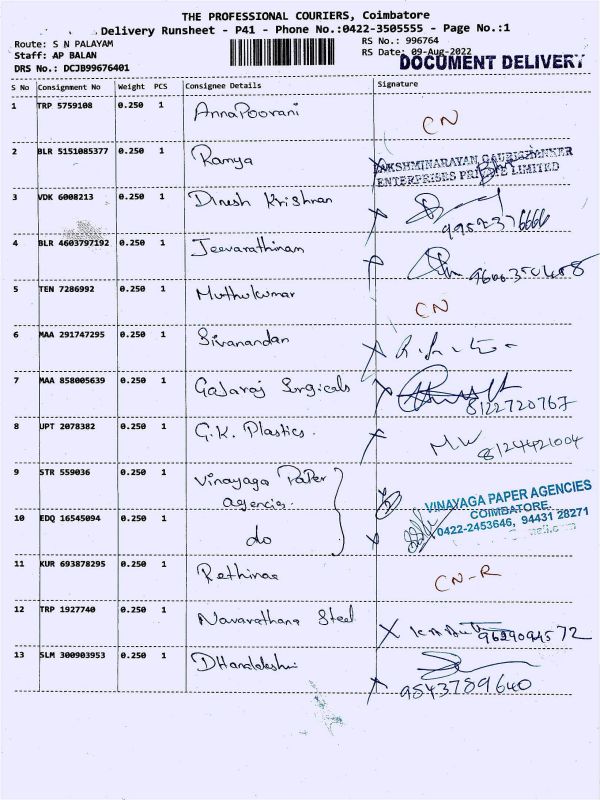 THE PROFESSIONAL COURIERS, Coimbatore
Delivery Runsheet - P41 - Phone No.:0422-3505555 - Page No.:1
Route: S N PALAYAM
RS No.: 996764
Staff: AP BALAN
RS Date: 09-Aug-2022
DOCUMENT DELIVERY
DRS No.: DCJB99676401
S No Consignment No Weight PCS Consignee Details Signature
1 TRP 5759108 0.250 1 AnnaPoorani CN
2 BLR 5151085377 0.250 1 Ramya LAKSHMINARAYAN GAURISHANKER
ENTERPRISES PRIVATE LIMITED
3 VDK 6008213 0.250 1 Dinesh Krishnan
9952376666
4 BLR 4603797192 0.250 1 Jeevarathinam
5 TEN 7286992 0.250 1 Muthukumar CN
6 MAA 291747295 0.250 1 Sivanandan
7 MAA 858005639 0.250 1 Gajaraj Surgicals
8122720767
8 UPT 2078382 0.250 1 G.K. Plastics. M.W
8124421004
9 STR 559036 0.250 1 Vinayaga Paper
agencies.
VINAYAGA PAPER AGENCIES
COIMBATORE.
0422-2453646, 94431 28271
10 EDQ 16545094 0.250 1 do
11 KUR 693878295 0.250 1 Rethinae CN-R
12 TRP 1927740 0.250 1 Navarathana Steel 9629094572
13 SLM 300903953 0.250 1
9843789640